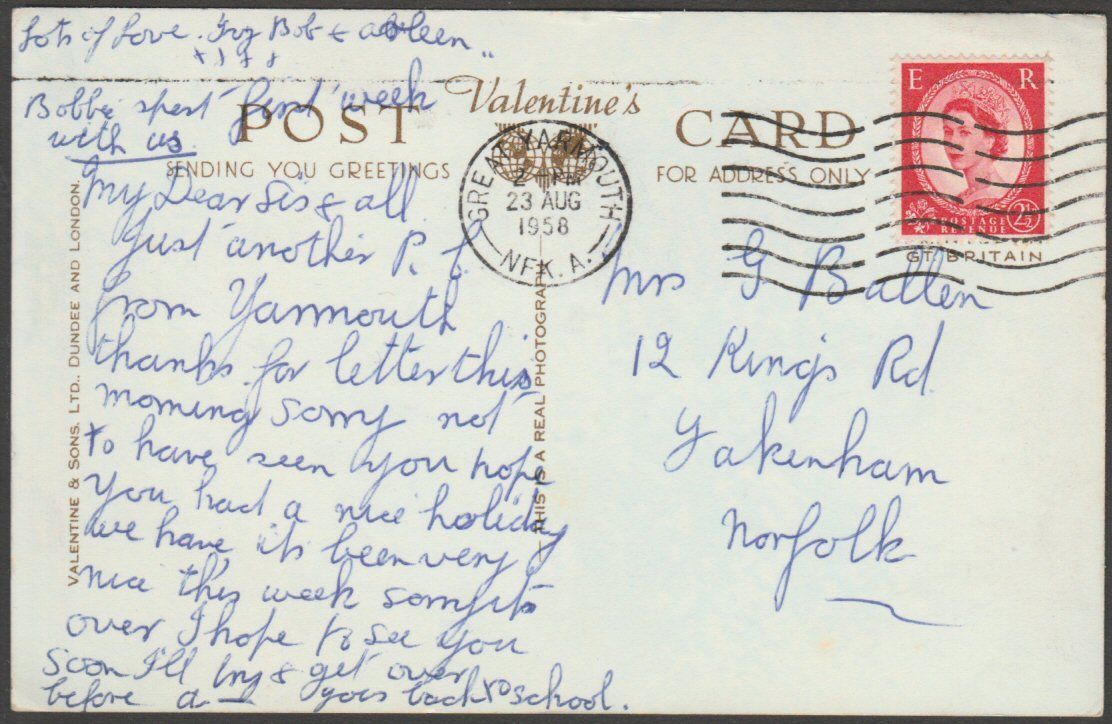 Lots of Love. Bob & 
Bobbie spent first week
with us
POST Valentine's CARD
SENDING YOU GREETINGS
FOR ADDRESS ONLY
E R
POSTAGE REVENUE 2½
GT. BRITAIN
GREAT YARMOUTH
2 - PM
23 AUG
1958
NFK. A.
VALENTINE & SONS, LTD., DUNDEE AND LONDON.
THIS IS A REAL PHOTOGRAPH
My Dear Sis & all
Just another P. C.
from Yarmouth
thanks for letter this
morning sorry not
to have seen you hope
you had a nice holiday
we have, its been very
nice this week sorry its
over I hope to see you
soon I'll try & get over
before a— goes back to school.
Mrs G Ballen
12 Kings Rd
Fakenham
Norfolk